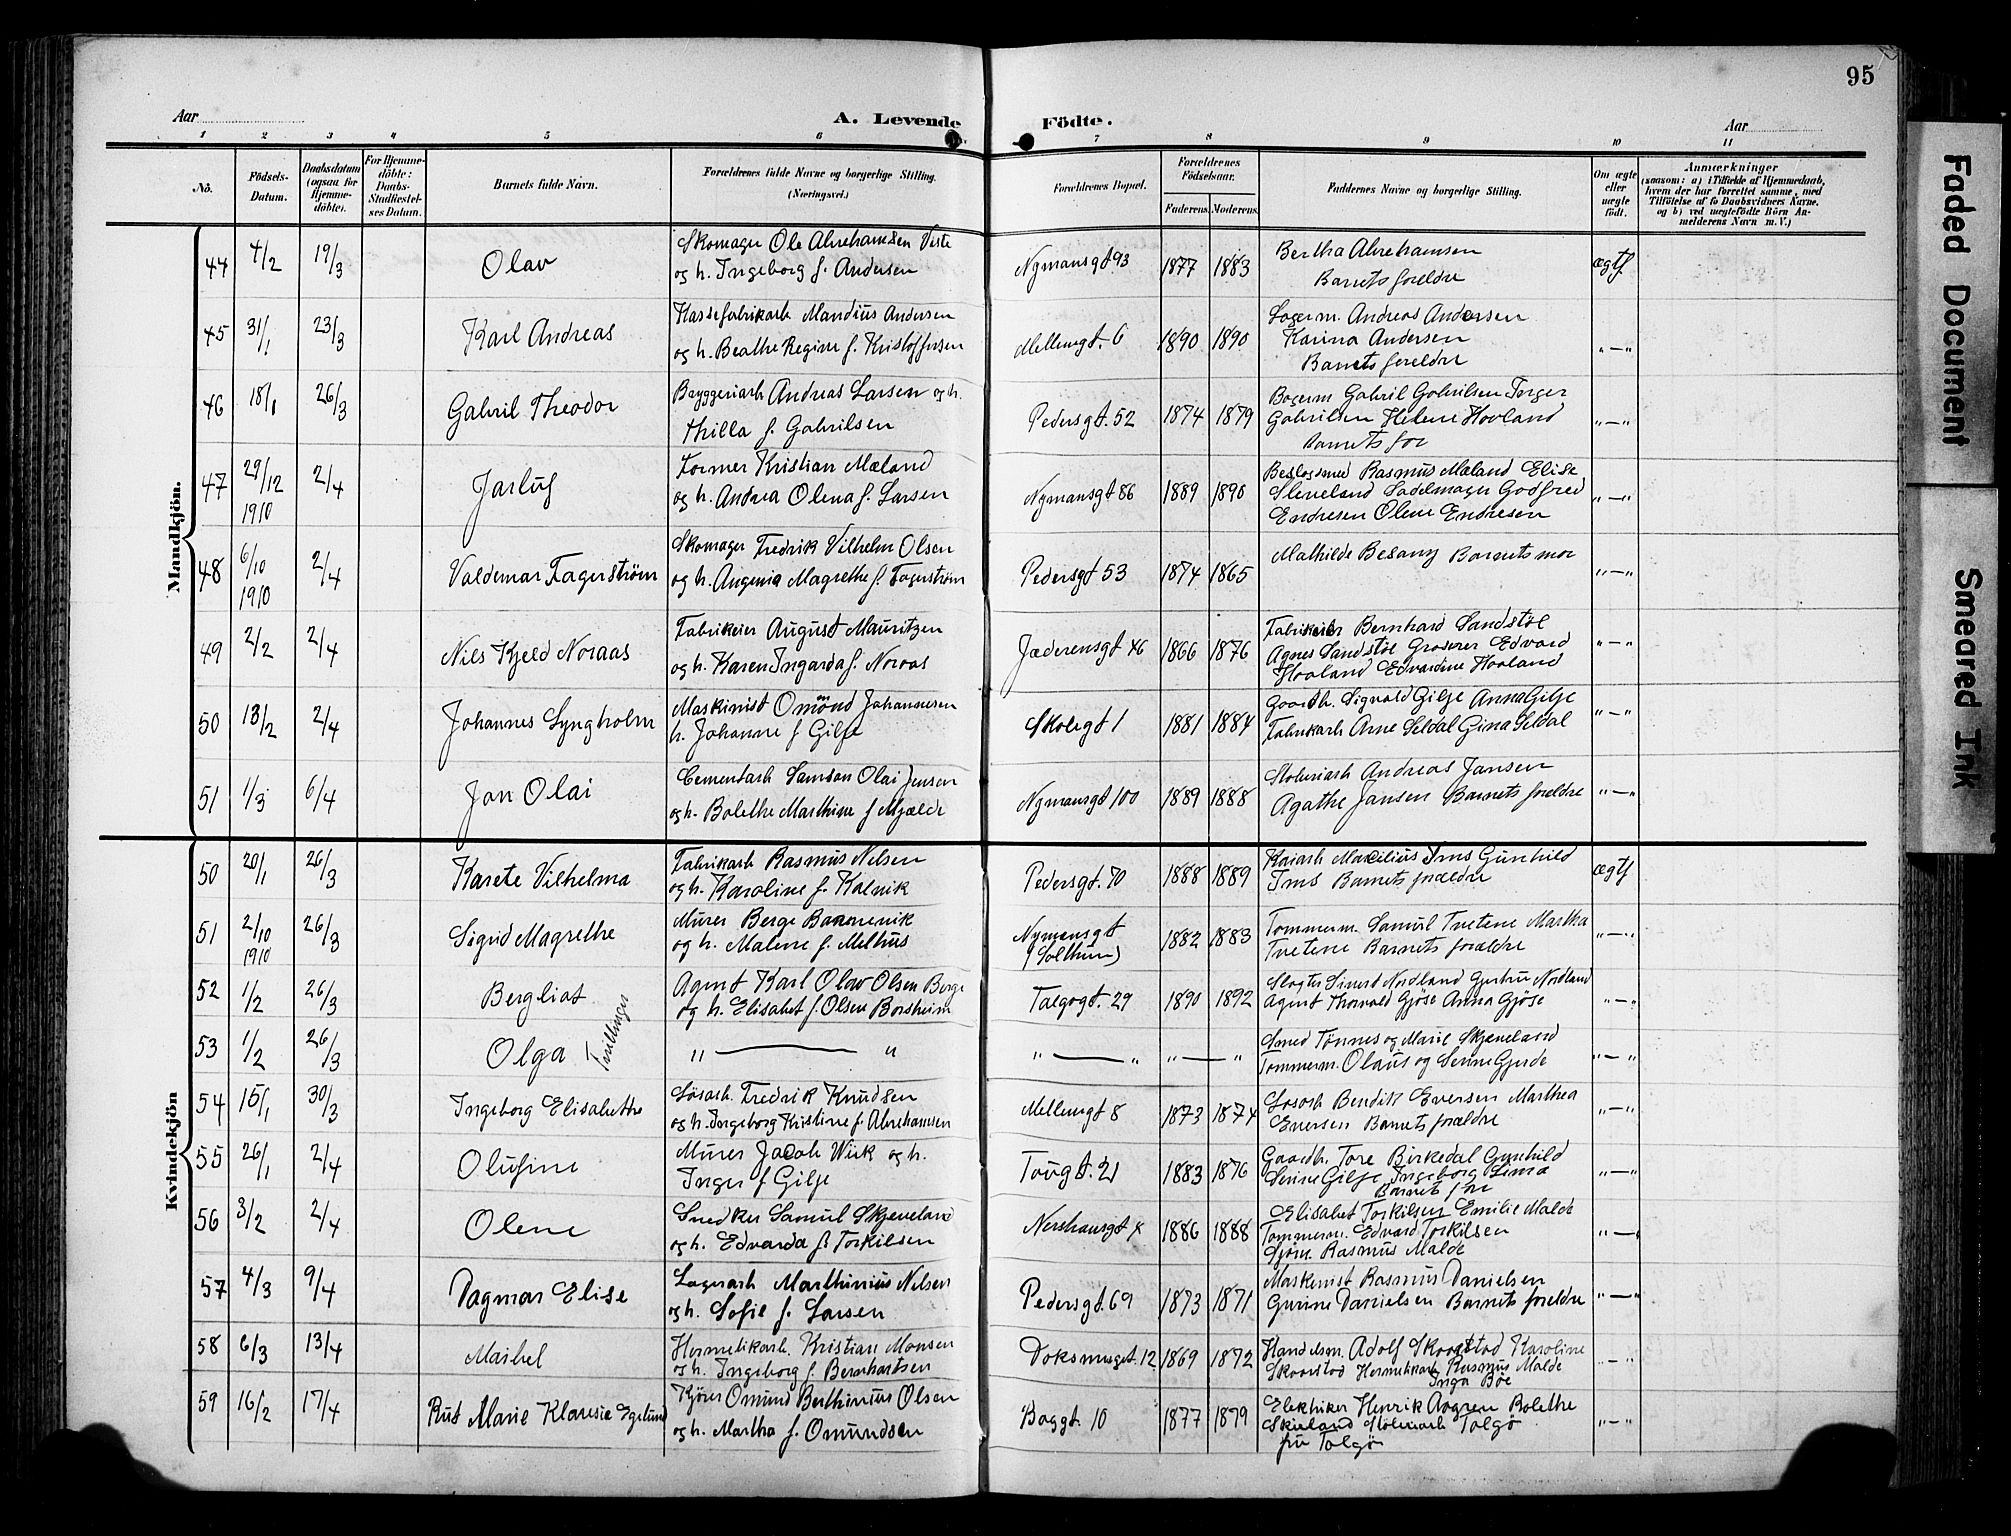 95
Aar
A. Levende Födte.
Aar
1 2 3 4 5 6 7 8 9 10 11
No.
Födsels-Datum.
Daabsdatum (ogsaa for Hjemme-döbte).
For Hjemme-döbte: Daabs-Stadfæstel-ses Datum.
Barnets fulde Navn.
Forældrenes fulde Navne og borgerlige Stilling. (Næringsvei.)
Forældrenes Bopæl.
Forældrenes Födselsaar.
Faderens. Moderens.
Faddernes Navne og borgerlige Stilling.
Om ægte eller uægte født.
Anmærkninger
(saasom: a) i Tilfælde af Hjemmedaab, hvem der har forrettet samme, med Tilföielse af to Daabsvidners Navne. og b) ved uægtefödte Börn An-melderens Navn m. V.)
Mandkjön.
44 4/2 19/3 Olav Skomager Ole Abrahamsen Viste
og h. Ingeborg f. Andersen Nymansgt 93 1877 1883 Bertha Abrahamsen
Barnets foreldre ægtf
45 31/1 23/3 Karl Andreas Kassefabrikarb. Mandius Andersen
og h. Beathe Regine f. Kristoffersen Mellemgt. 6 1890 1890 Lagerm. Andreas Andersen
Karina Andersen
Barnets foreldre "—"
46 18/1 26/3 Gabril Theodor Bryggeriarb Andreas Larsen og h.
Thilla f. Gabrilsen Pedersgt. 52 1874 1879 Gabril Gabrilsen Torger
Gabrilsen Helene Hovland
Barnets for "—"
47 29/12 1910 2/4 Jarluf Former Kristian Mæland
og h. Andrea Olena f. Larsen Nymansgt 86 1889 1890 Beslagsmed Rasmus Mæland Elise
Sleveland Sadelmager Godfred
Endresen Olene Endresen "—"
48 6/10 1910 2/4 Valdemar Fagerstrøm Skomager Fredrik Vilhelm Olsen
og h. Angenia Magrethe f. Fagerstrøm Pedersgt 53 1874 1865 Mathilde Besany Barnets mor "—"
49 2/2 2/4 Nils Kjeld Noraas Fabrikeier August Mauritzen
og h. Karen Ingarda f. Noraas Jæderensgt 46 1866 1876 Fabrikeier Bernhard Sandstøl
Agnes Sandstøl Groserer Edvard
Hovland Edvardine Hovland "—"
50 13/2 2/4 Johannes Lyngholm Maskinist Omönd Johannesen
h. Johanne f Gilje Skolegt 1 1881 1884 Gaardb. Sigvald Gilje Anna Gilje
Fabrikarb Arne Seldal Gina Seldal "—"
51 1/3 6/4 Jon Olai Cementarb Samson Olai Jensen
og h. Bolethe Marthine f Mjælde Nymansgt 100 1889 1888 Støberiarb Andreas Jansen
Agathe Jansen Barnets foreldre "—"
Kvindekjön
50 20/1 26/3 Karete Vilhelma Fabrikarb Rasmus Nelsen
og h. Karoline f. Kalvik Pedersgt. 70 1888 1889 Kaiarb Macilius Ims Gunhild
Ims Barnets forældre ægtf
51 2/10 1910 26/3 Sigrid Magrethe Murer Berge
og h. Malene f. Melhus Nymansgt
(Solthun) 1882 1883 Tommerm. Samuel Tvetene Martha
Tvetene Barnets forældre "—"
52 1/2 26/3 Bergliot Agent Karl Olav Olsen Berge
og h. Elisabet f. Olsen Borsheim Talgogt. 29 1890 1892 Slagter Sivert Nordland Gurtru Nordland
Agent Thorvald Gjöse Anna Gjöse "—"
Tvillinger
53 1/2 26/3 Olga " — " " — " " — " Smed Tønnes og Marie Skjeveland
Tommerm. Olaus og Serine Gjerde "—"
54 15/1 30/3 Ingeborg Elisabethe Løsarb. Fredrik Knudsen
og h. Ingeborg Kristine f. Abrahamsen Mellemgt 8 1873 1874 Løsarb Bendik Eversen Marthea
Eversen Barnets forældre "—"
55 26/1 2/4 Olufine Murer Jacob Wiik og h.
Inger f Gilje Tougt. 21 1883 1876 Gaardb. Tore Birkedal Gunhild
Serine Gilje Ingeborg Lima
Barnets for "—"
56 3/2 2/4 Olene Snedker Samuel Skjeveland
og h. Edvarda f. Torkilsen 1886 1888 Elisabet Torkilsen Emilie Malde
Tommerm. Edvard Torkilsen
Sjøm. Rasmus Malde "—"
57 4/3 9/4 Dagmar Elise Lagerarb Marthinius Nelsen
og h. Sofie f. Larsen Pedersgt. 69 1873 1871 Maskenist Rasmus Danielsen
Gurine Danielsen Barnets foreldre "—"
58 6/3 13/4 Maibel Hermetikarb. Kristian Monsen
og h. Ingeborg f. Bernhartsen Doksmugt. 12 1869 1872 Handelsm. Adolf Skoorstad Karoline
Skoorstad Hermetikarb Rasmus Malde
Inga Bøe "—"
59 16/2 17/4 Rut Marie Klaresia Egelund Kjører Omund Berthinius Olsen
og h. Martha f. Omundsen Baggt. 10 1877 1879 Elektriker Henrik Aagren Bolethe
Skieland Støberiarb Talgø
fru Talgø "—"
Faded Document
Smeared Ink